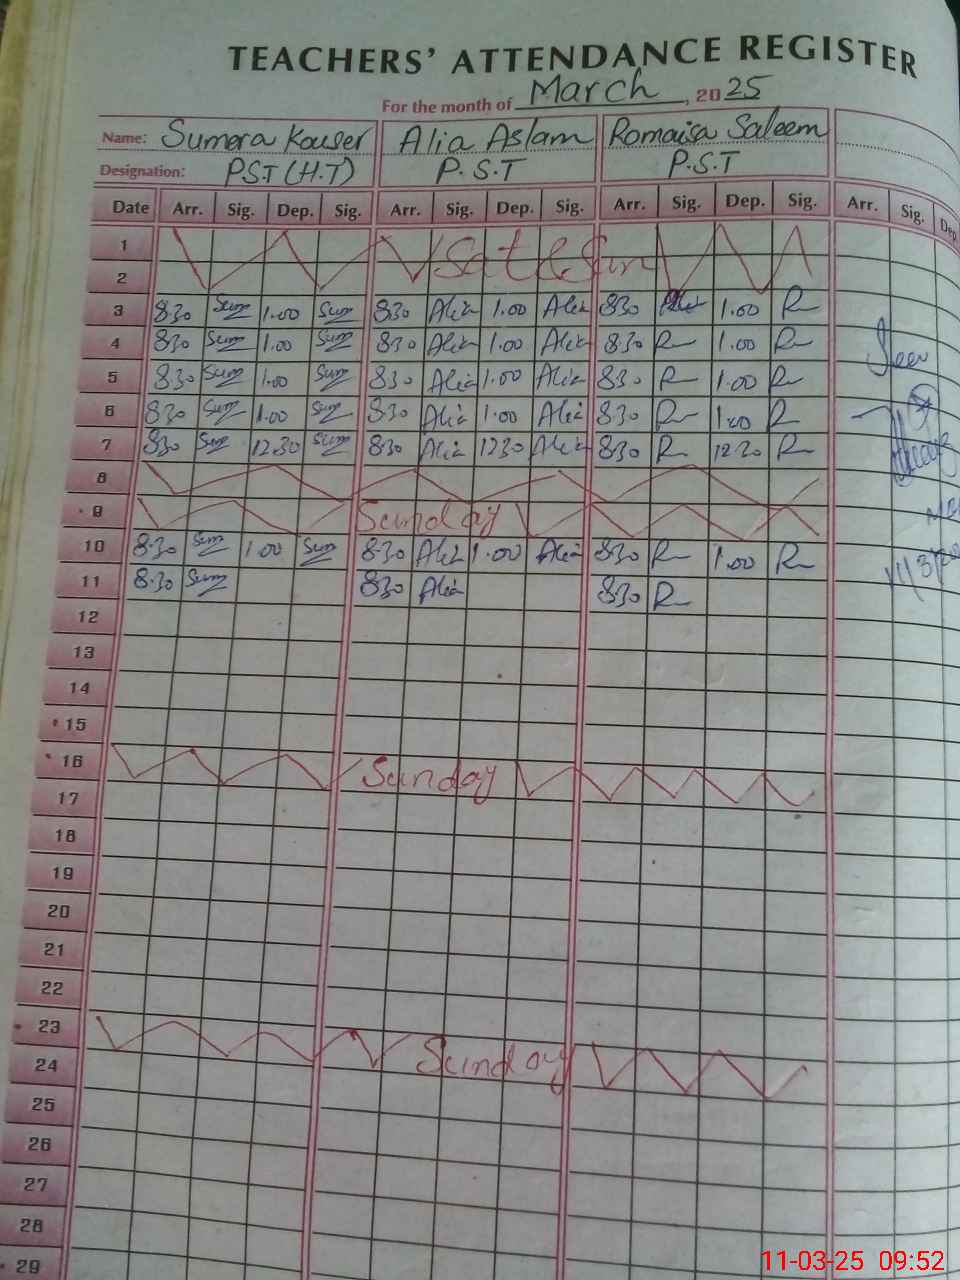 TEACHERS' ATTENDANCE REGISTER
For the month of March, 2025
Name: Sumera Kouser Alia Aslam Romaisa Saleem
Designation: PST (H.T) P.S.T P.S.T
Date Arr. Sig. Dep. Sig. Arr. Sig. Dep. Sig. Arr. Sig. Dep. Sig. Arr. Sig. Dep
1 Sat & Sun
2
3 8:30 Sum 1.00 Sum 8:30 Alia 1.00 Alia 8:30 1.00 R
4 8:30 Sum 1.00 Sum 8:30 Alia 1.00 Alia 8:30 R 1.00 R
5 8:30 Sum 1.00 Sum 8:30 Alia 1.00 Alia 8:30 R 1.00 R
Seen
6 8:30 Sum 1.00 Sum 8:30 Alia 1.00 Alia 8:30 R 1.00 R
7 8:30 Sum 12.30 Sum 8:30 Alia 1230 Alia 8:30 R 12.30 R
8
9 Sunday
10 8:30 Sum 1.00 Sum 8:30 Alia 1.00 Alia 8:30 R 1.00 R
11 8:30 Sum 8:30 Alia 8:30 R
12
13
14
15
16 Sunday
17
18
19
20
21
22
23
24 Sunday
25
26
27
28
29
11-03-25 09:52